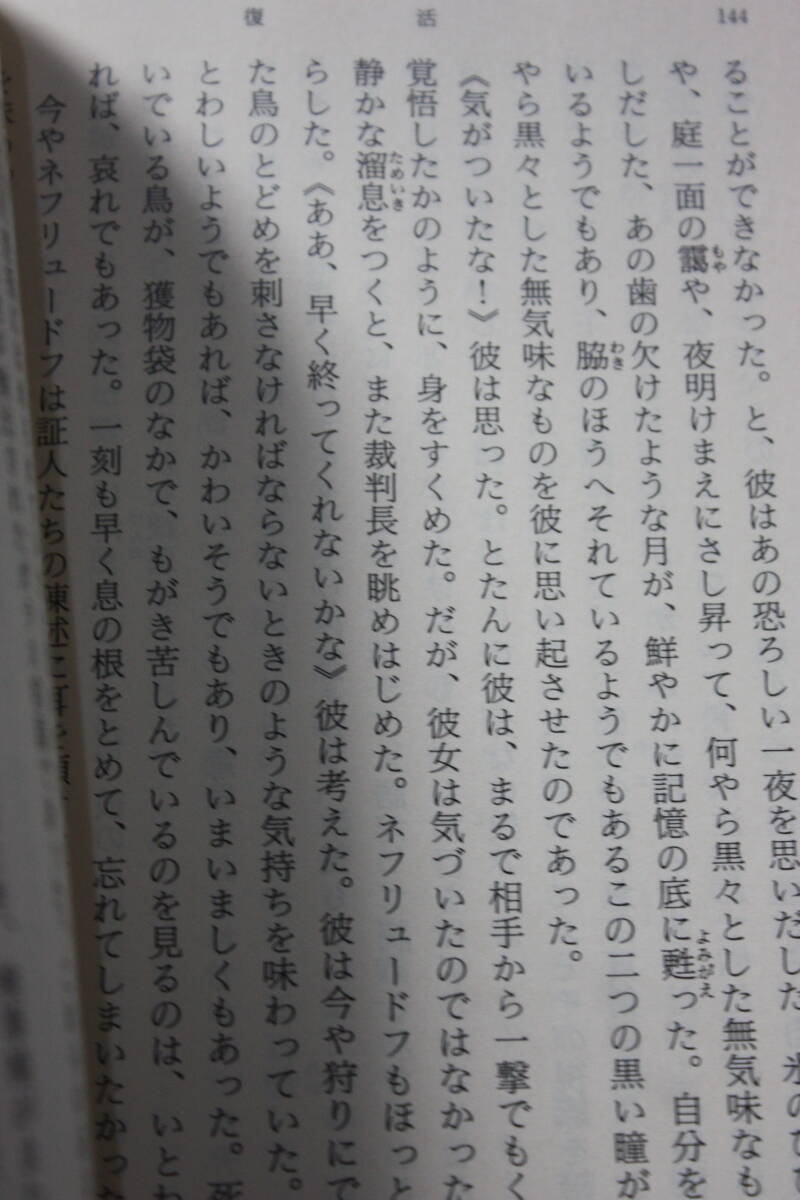 復活
144
ることができなかった。と、彼はあの恐ろしい一夜を思いだした。氷のひび
や、庭一面の靄や、夜明けまえにさし昇って、何やら黒々とした無気味なも
しだした、あの歯の欠けたような月が、鮮やかに記憶の底に甦った。自分を
いるようでもあり、脇のほうへそれているようでもあるこの二つの黒い瞳が
やら黒々とした無気味なものを彼に思い起させたのであった。
《気がついたな!》彼は思った。とたんに彼は、まるで相手から一撃でもく
覚悟したかのように、身をすくめた。だが、彼女は気づいたのではなかった
静かな溜息をつくと、また裁判長を眺めはじめた。ネフリュードフもほっと
らした。《ああ、早く終ってくれないかな》彼は考えた。彼は今や狩りにで
た鳥のとどめを刺さなければならないときのような気持ちを味わっていた。
とわしいようでもあれば、かわいそうでもあり、いまいましくもあった。死
いでいる鳥が、獲物袋のなかで、もがき苦しんでいるのを見るのは、いとわ
れば、哀れでもあった。一刻も早く息の根をとめて、忘れてしまいたかった
今やネフリュードフは証人たちの陳述に耳を